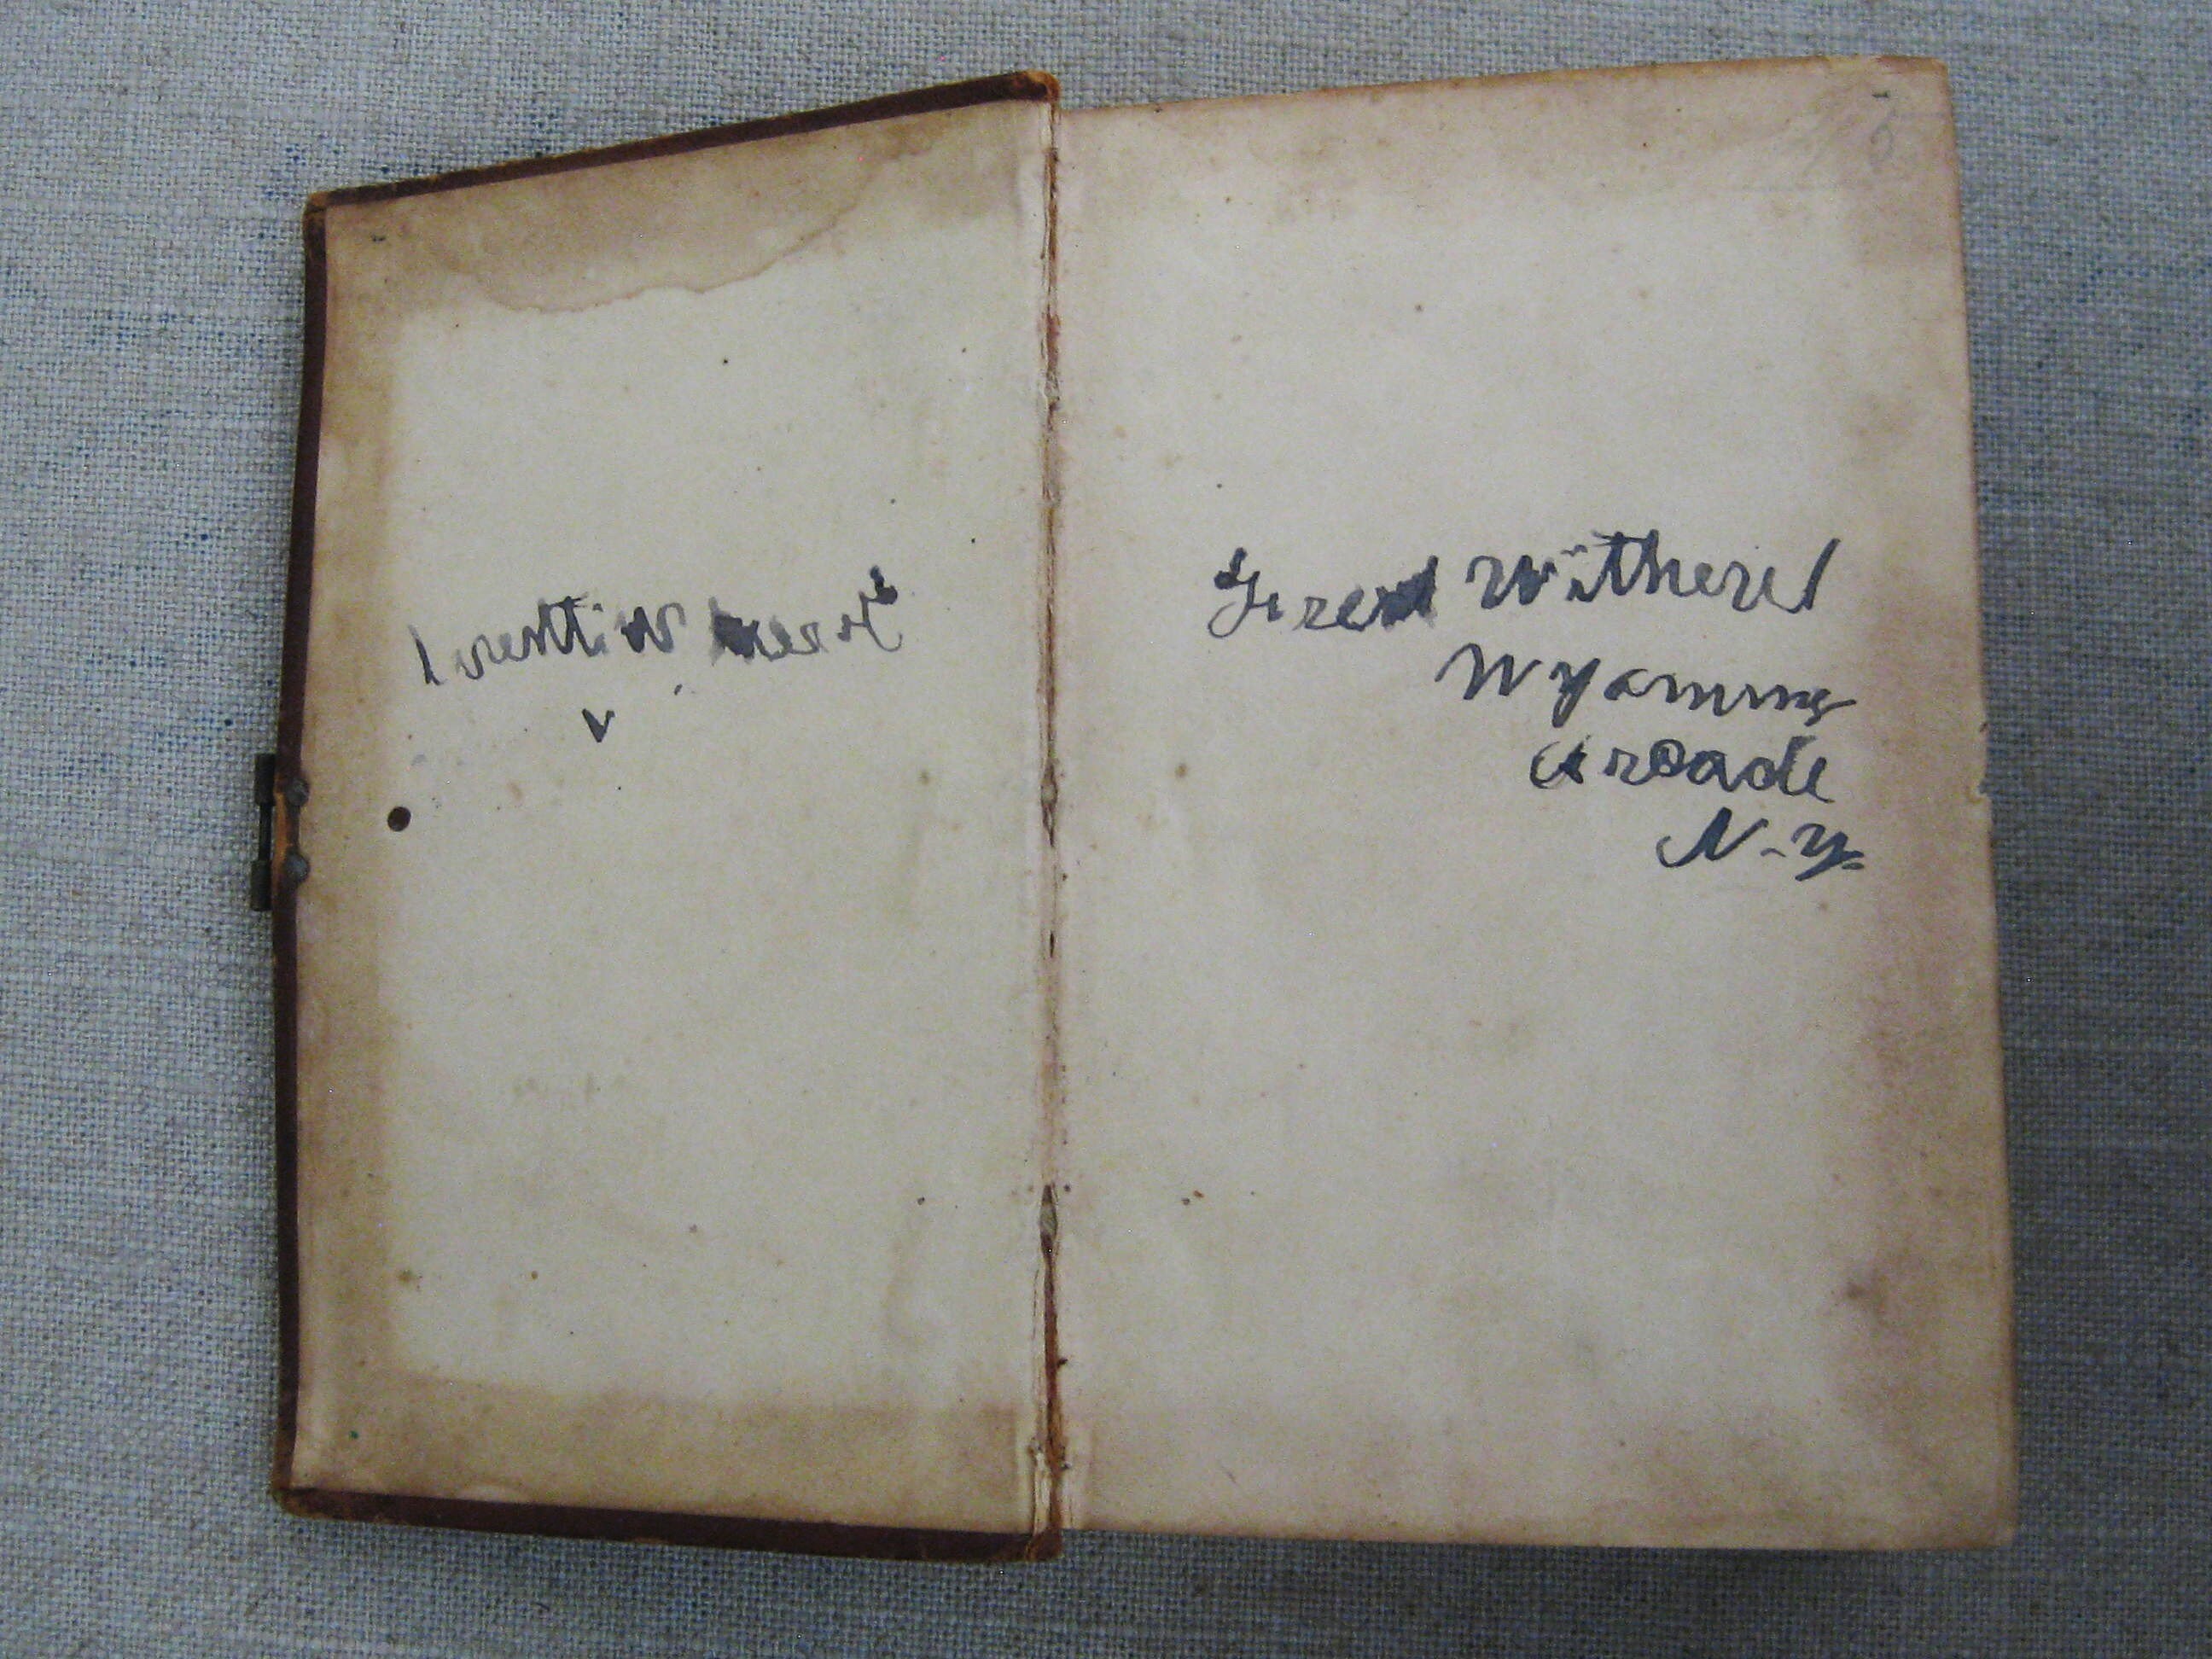 Witherel
Wyoming
Arcade
N-Y